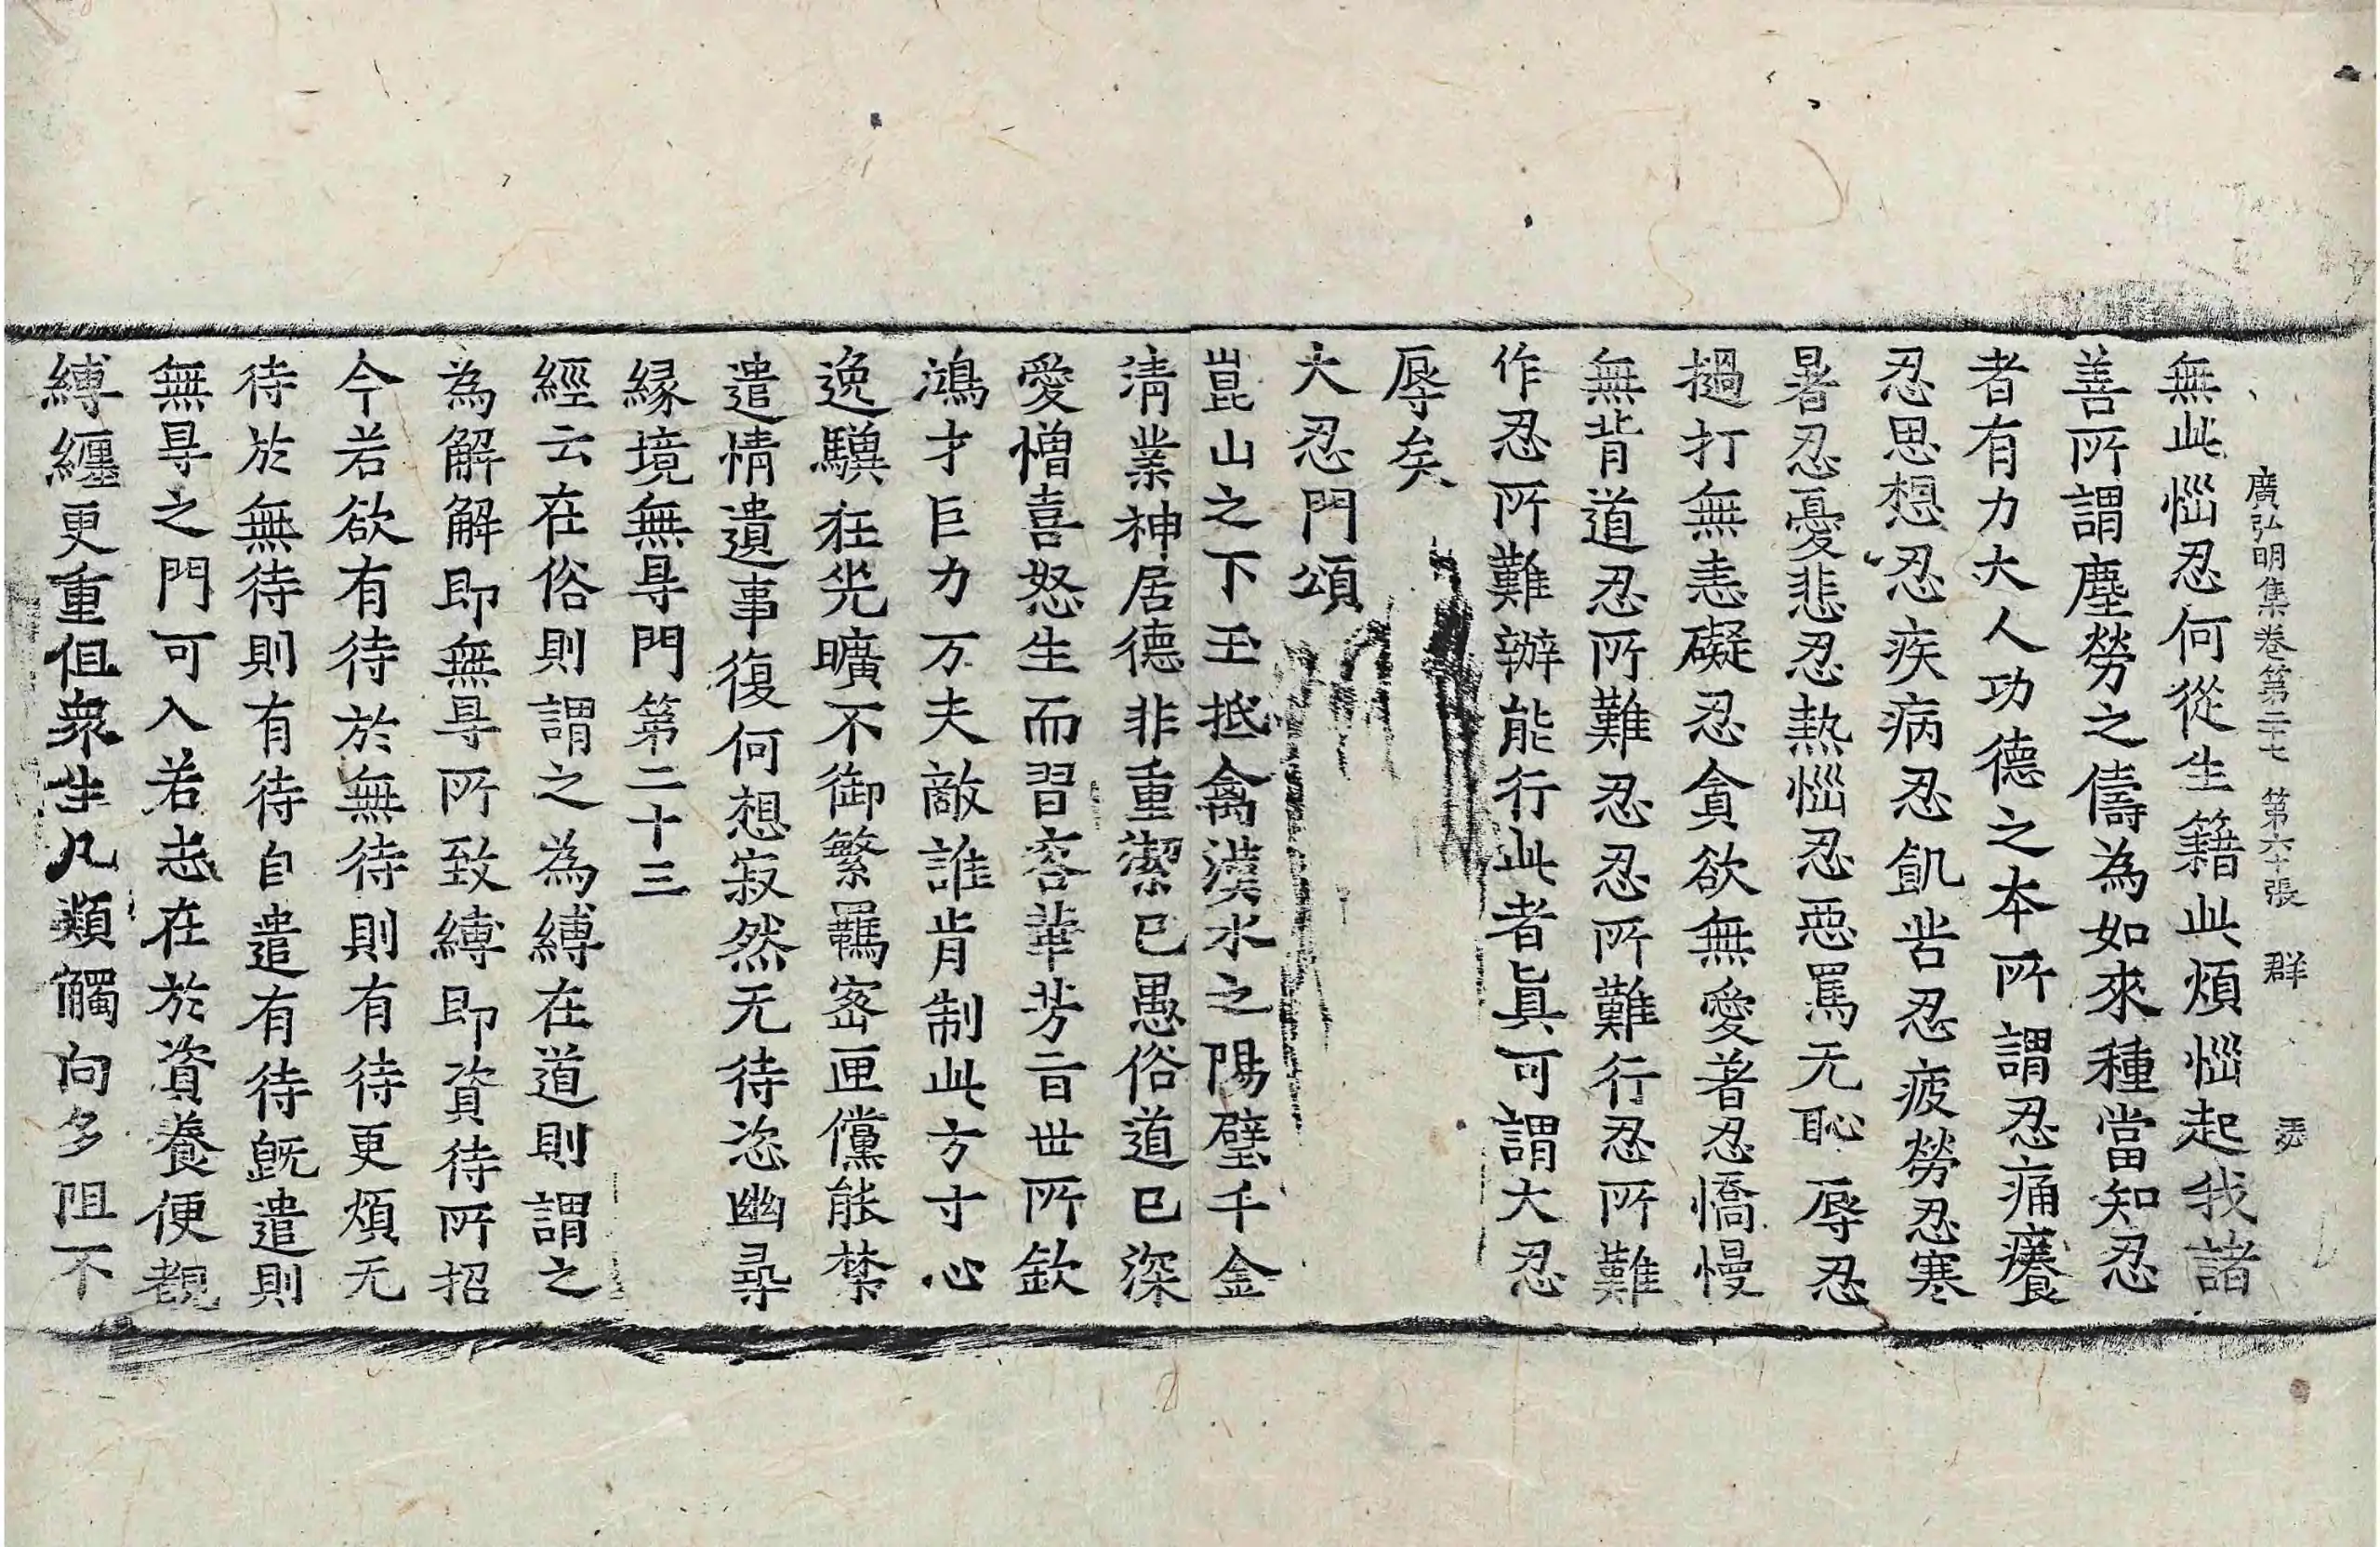 廣弘明集卷第二十七 第六十張 群
無此惱忍何從生籍此煩惱起我諸
善所謂塵勞之儔為如來種當知忍
者有力大人功德之本所謂忍痛癢
忍思想忍疾病忍飢苦忍疲勞忍寒
暑忍憂悲忍熱惱忍惡罵无恥辱忍
撾打無恚礙忍貪欲無愛著忍憍慢
無背道忍所難忍忍所難行忍所難
作忍所難辦能行此者眞可謂大忍
辱矣
大忍門頌
崑山之下玉抵禽漢水之陽璧千金
清業神居德非重潔已愚俗道已深
愛憎喜怒生而習容華芳旨世所欽
鴻才巨力万夫敵誰肯制此方寸心
逸驥狂兕曠不御繁羈密匣儻能禁
遣情遺事復何想寂然无待恣幽尋
緣境無㝵門第二十三
經云在俗則謂之為縛在道則謂之
為解解即無㝵所致縛即資待所招
今若欲有待於無待則有待更煩无
待於無待則有待自遣有待旣遣則
無㝵之門可入若志在於資養便覩
縛纏更重但衆生凡類觸向多阻不